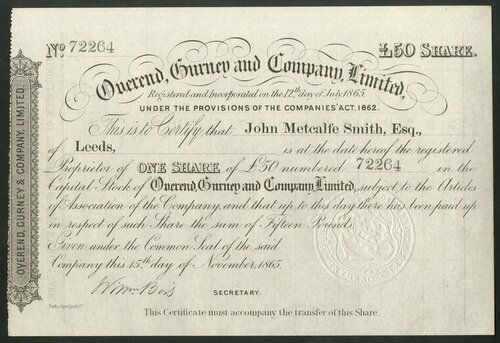 No 72264
£50 SHARE.
Overend, Gurney and Company, Limited,
Registered and Incorporated on the 12th day of July 1865,
UNDER THE PROVISIONS OF THE COMPANIES' ACT, 1862.
This is to Certify that John Metcalfe Smith, Esq.,
of Leeds, is at the date hereof the registered
Proprietor of ONE SHARE of £50 numbered 72264 in the
Capital Stock of Overend, Gurney and Company, Limited, subject to the Articles
of Association of the Company, and that up to this day there has been paid up
in respect of such Share the sum of Fifteen Pounds.
Given under the Common Seal of the said
Company this 15th day of November, 1865.
SECRETARY.
This Certificate must accompany the transfer of this Share
OVEREND, GURNEY & COMPANY, LIMITED.